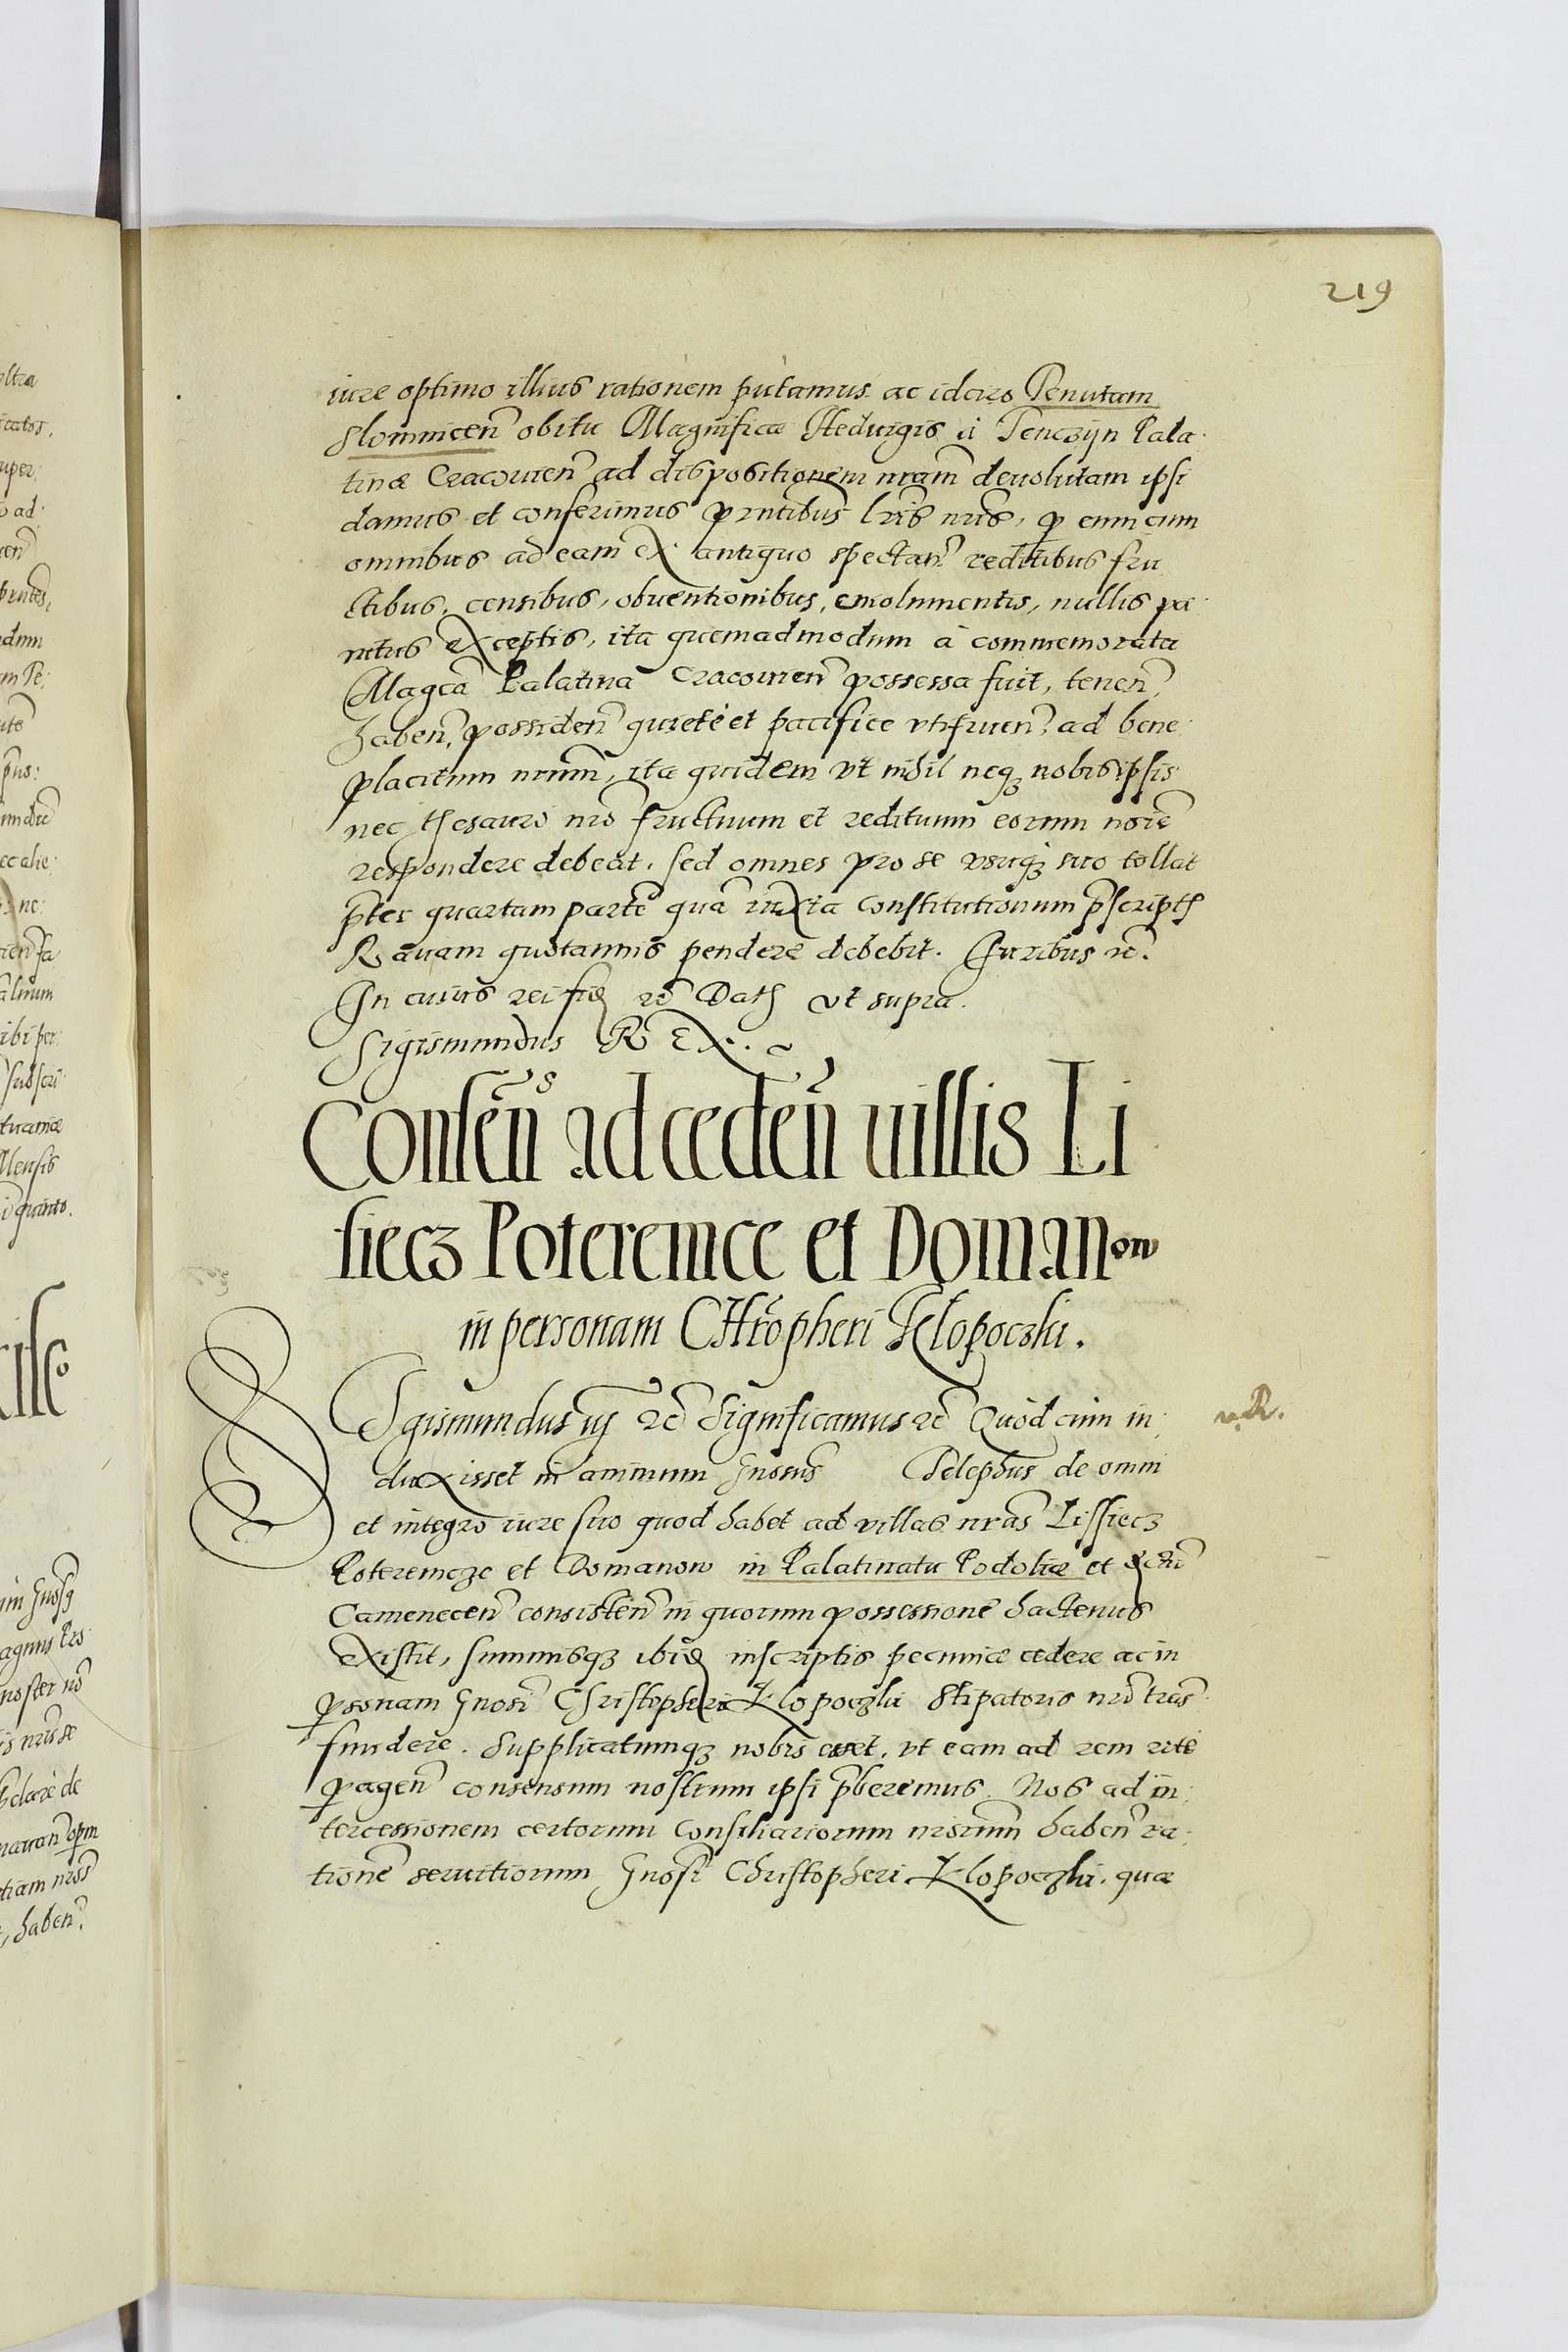 219
iure optimo illius rationem putamus ac idciro Tenutam
Slominicen̄ obitu Magnificæ Heduigis à Tenczijn Pala
tinæ Cracouien̄ ad dispositionem nram̄ deuolutam ipsi
damus et conferimus pr̄ntibus lr̄is nr̄is, p eum cum
omnibus ad eam ex antiquo spectan̄ redditibus fru
ctibus, censibus, obuentionibus, emolumentis, nullis pe
nitus exceptis, ita quemadmodum à commemorata
Magcā Palatina Cracouien̄ possessa fuit, tenen̄,
haben̄, possiden̄ quietè et pacifice vtifruen̄, ad bene
placitum nr̄um, ita quidem vt nihil neq nobis ipsis
nec thesauro nr̄o fructuum et redituum eorum noīe
respondere debeat. sed omnes pro se vsuq suo tollat
pr̄ter quartam partē quā iuxta constitutionum pr̄script
Rauam quotannis pendere debebit. Juribus rc̄.
In cuius rei fid rc̄ Dat vt supra.
Sigismundus REX.
Consen̄s ad ceden̄ uillis Li
siecz Poteremce et Domanow
in personam CHrōpheri Klopoczki.
SIgismundus iij rc̄ Significamus rc̄ Quòd cum in
v. R.
duxisset in animum Gnosus Pelephus de omni
et integro iure suo quod habet ad villas nr̄as Lissiecz
Poteremcze et Domanow in Palatinatu Podoliæ et
Camenecen̄ consisten̄ in quorum possessionē hactenus
existit, summisq ibid inscriptis pecuniæ cedere ac in
psonam Gnosi Christopheri Klopoczki Stipatoris nr̄i trans
fundere. Supplicatumq nobis esset, vt eam ad rem rite
pagen̄ consensum nostrum ipsi pr̄beremus. Nos ad in
tercessionem certorum Consiliariorum nr̄orum haben̄ ra
tionē seruitiorum Gnosi Christopheri Klopoczki. quæ